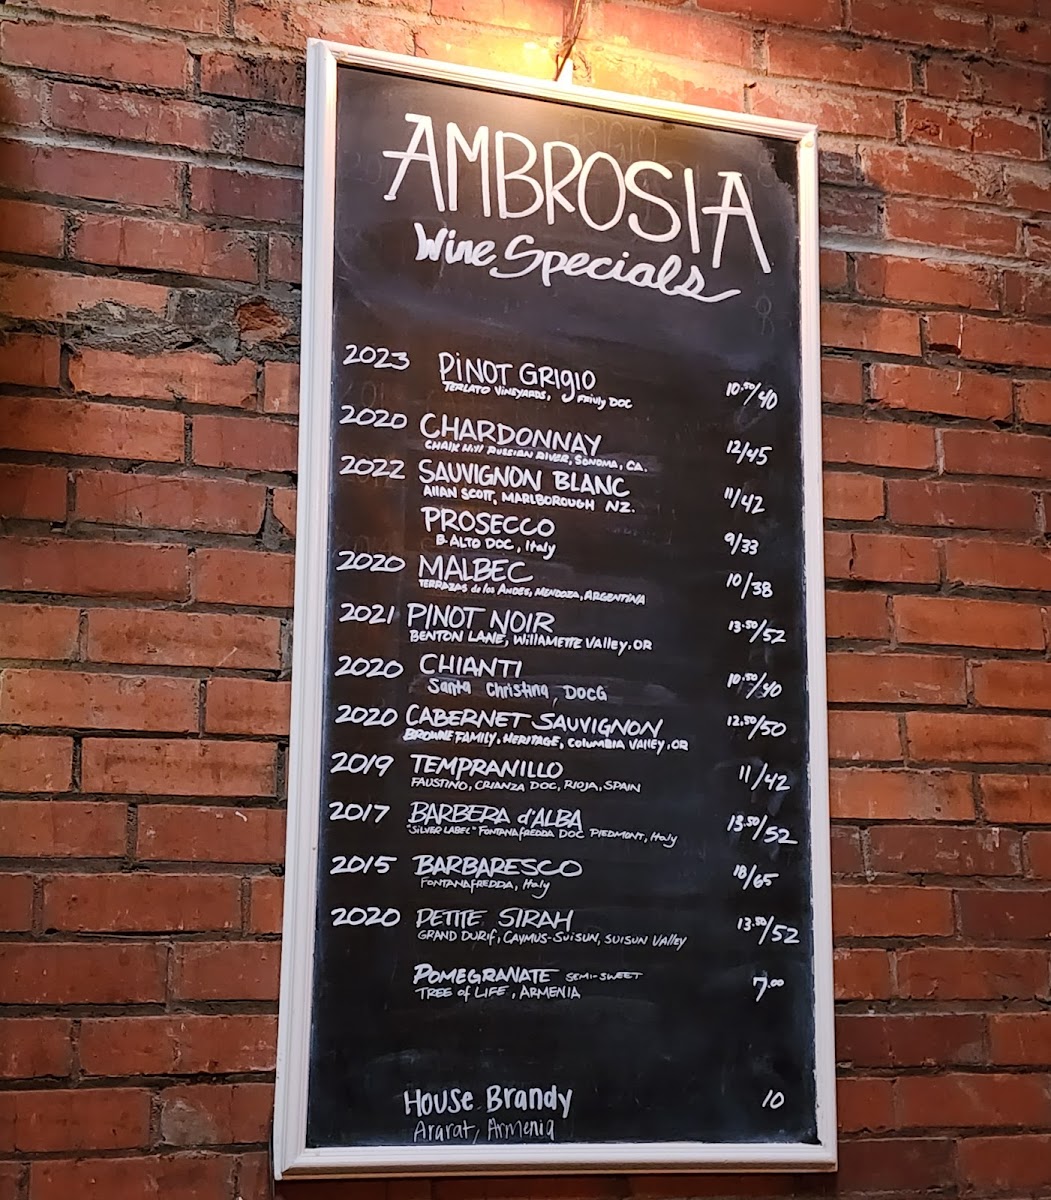 AMBROSIA
Wine Specials
2023 PiNOT GRigIO 10.50/40
TERLATO ViNEYARDS, FRiUly DOC
2020 CHARDONNAY 12/45
CHALK Hill RUSSIAN RIVER, SONOMA, CA.
2022 SAUVIGNON BLANC 11/42
Allan SCOTT, MARLBOROUGH NZ.
PROSECCO 9/33
B. ALTO DOC, Italy
2020 MALBEC 10/38
TERRAZAS de los ANDES, MENDOZA, ARGENTINA
2021 PINOT NOIR 13.50/52
BENTON LANE, WillAMETTE Valley, OR
2020 CHIANTI 10.50/40
Santa Christina, DOCG
2020 CABERNET SAUVIGNON 12.50/50
BROWNE FAMILY, HERITAGE, COLUMBIA VALLEY, OR
2019 TEMPRANILLO 11/42
FAUSTINO, CRIANZA DOC, RIOJA, SPAIN
2017 BARBERA d'ALBA 13.50/52
"SILVER LABEL" FONTANAfREDDA DOC PIEDMONT, Italy
2015 BARBARESCO 18/65
FONTANAfREDDA, Italy
2020 PETITE SIRAH 13.50/52
GRAND DURif, CAYMUS-SUISUN, SUISUN VAlley
POMEGRANATE SEMI-SWEET 7.00
TREE of LIFE, ARMENIA
House Brandy 10
Ararat, Armenia